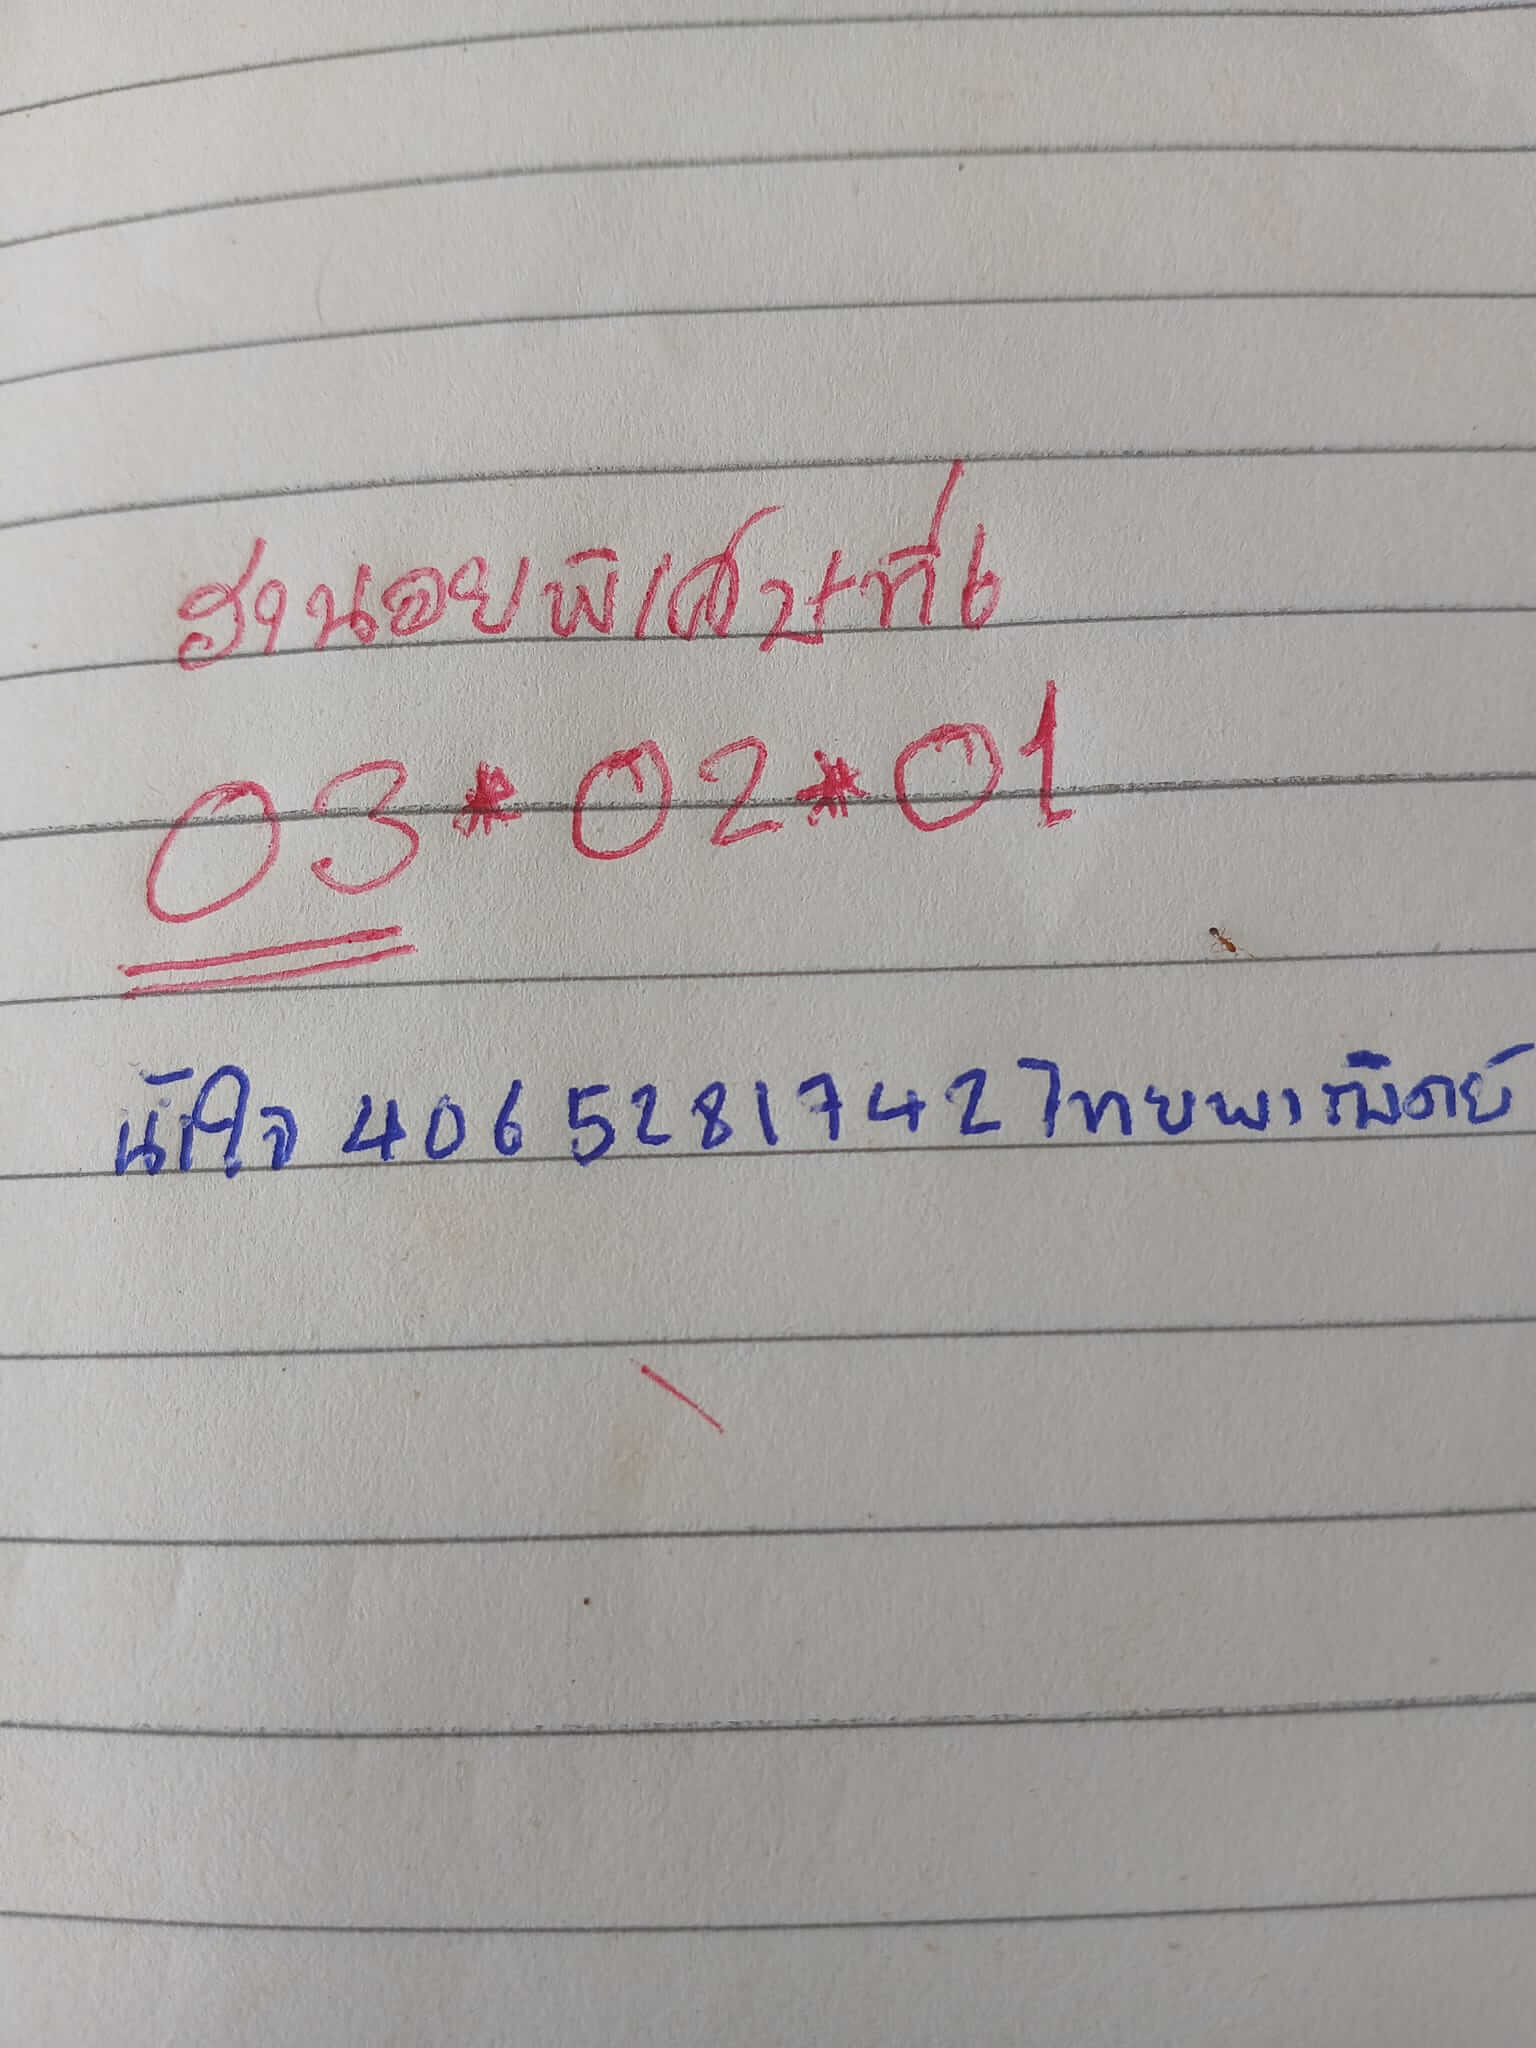 ฮานอยพิเศษที่6
03*02*01
น้ำใจ 4065281742 ไทยพาณิชย์